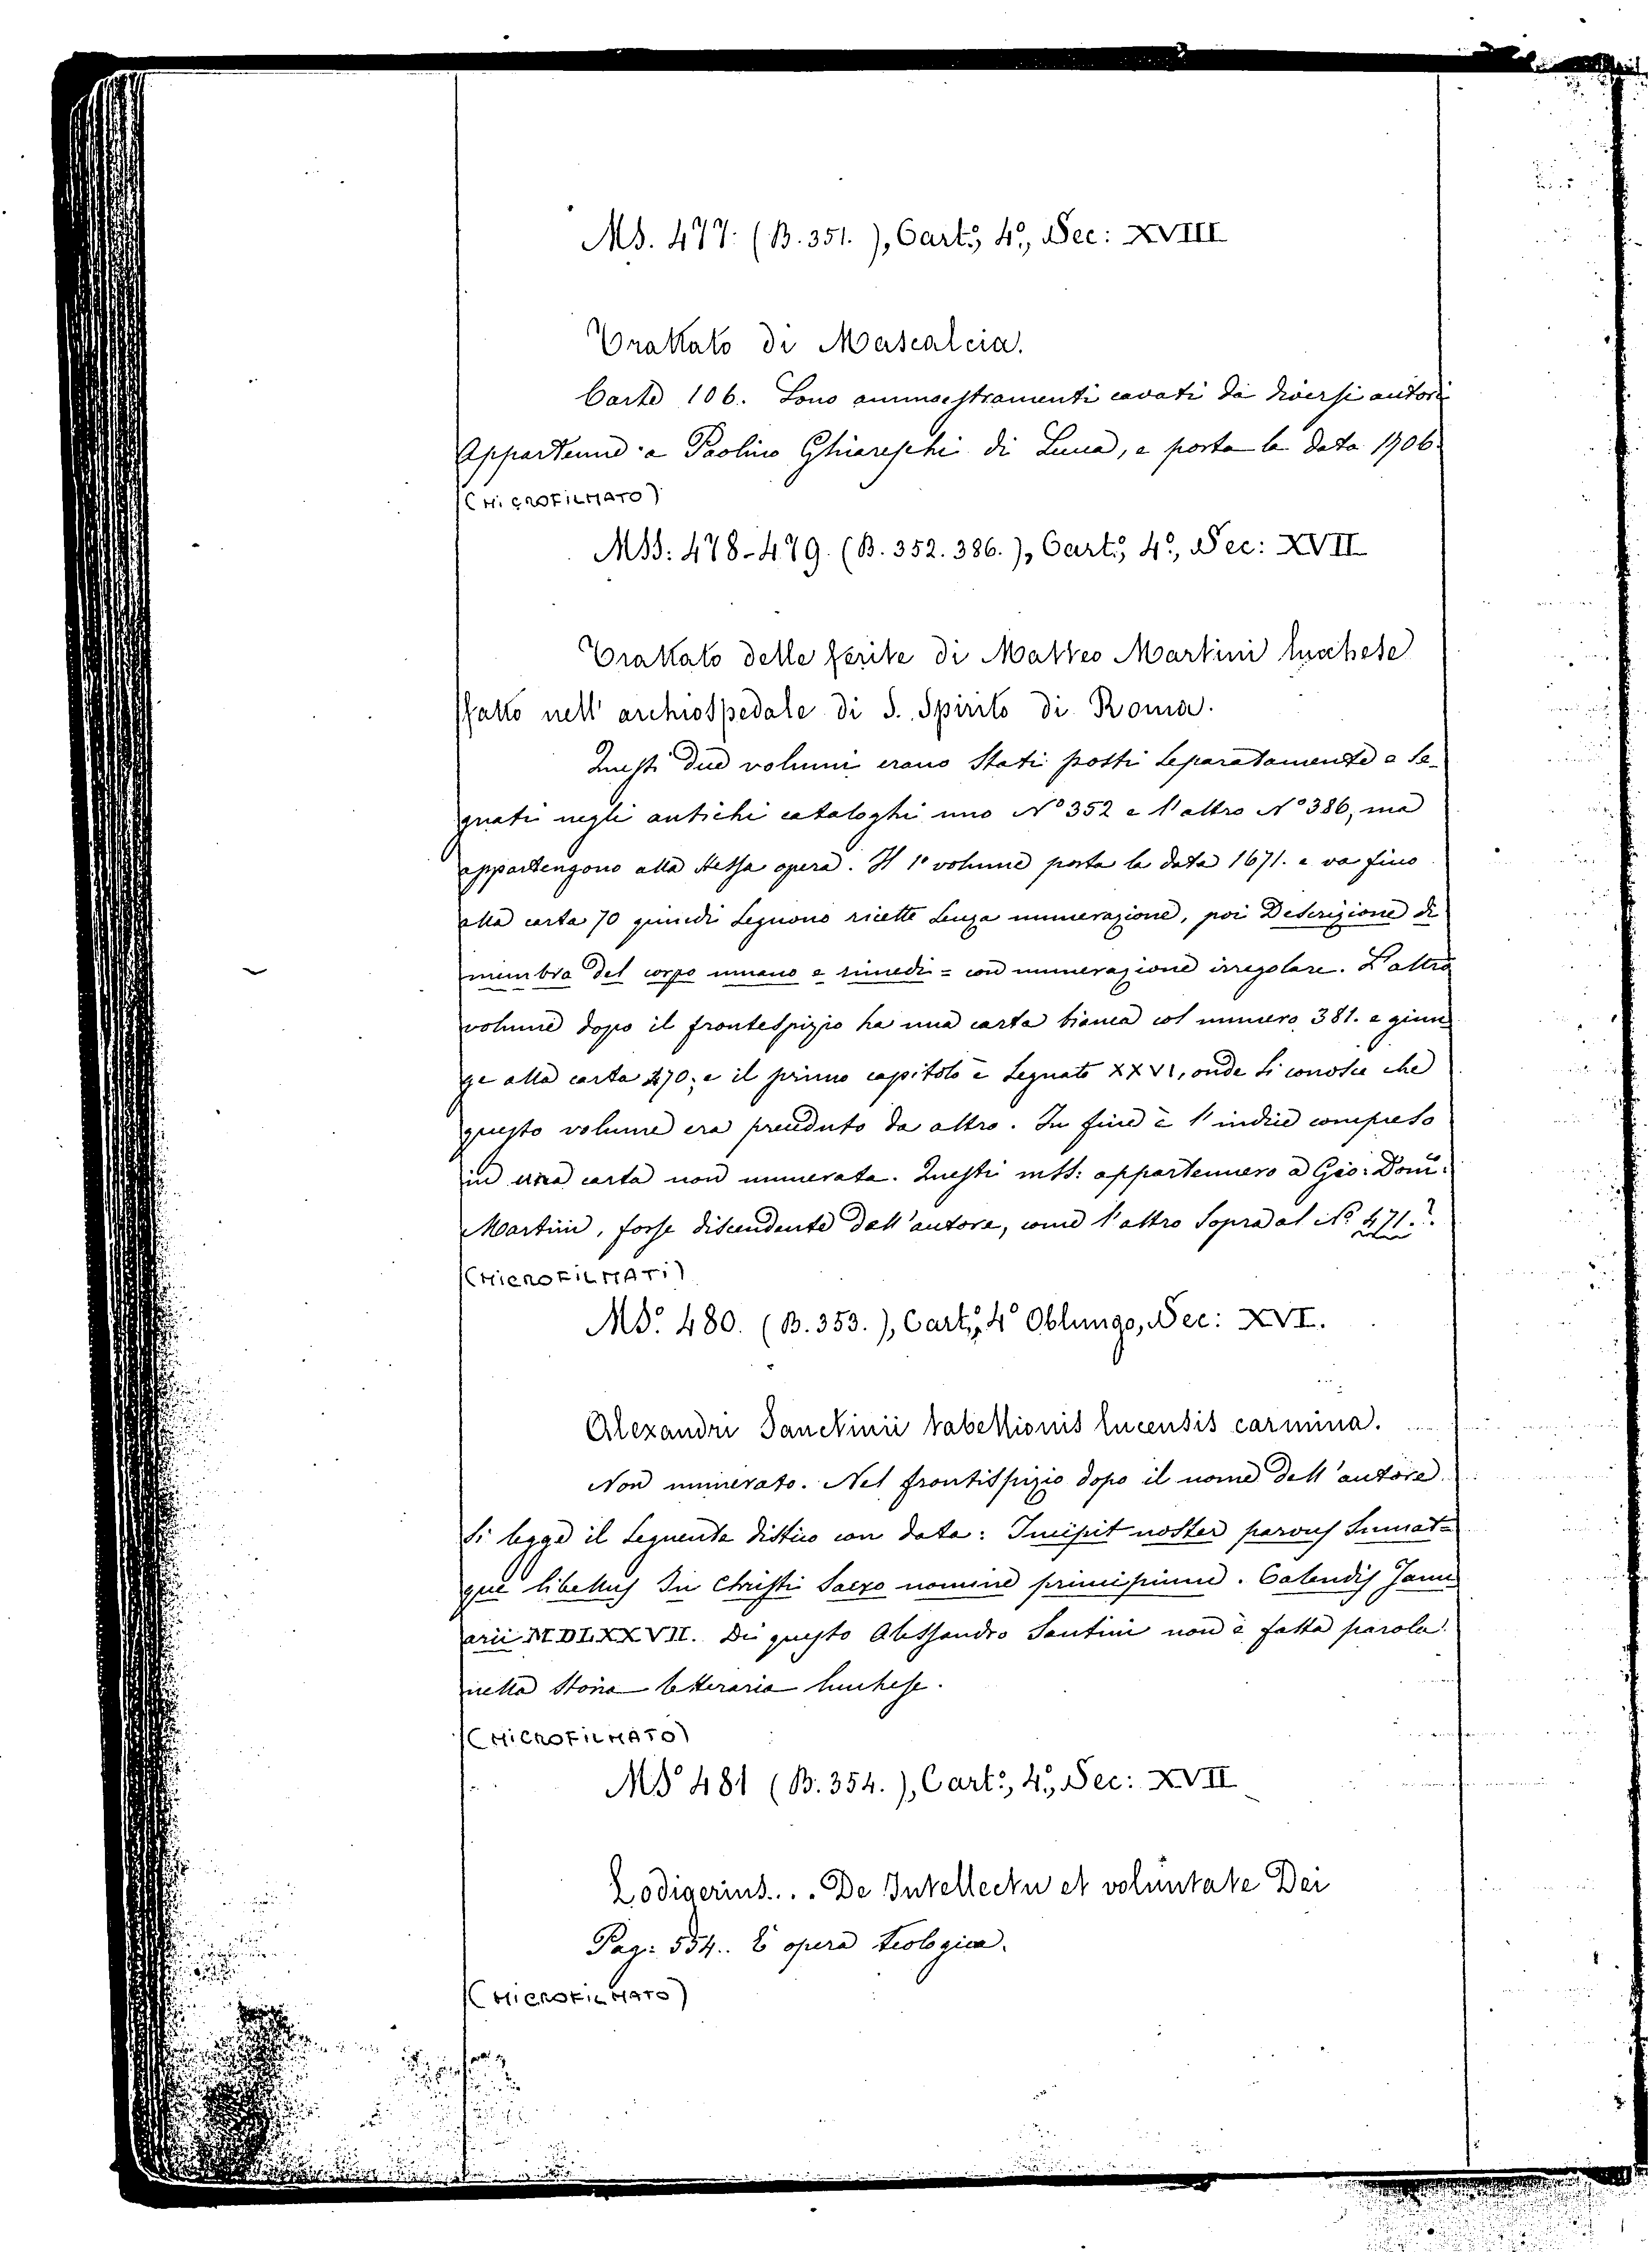 Ms. 477. (B. 351.), Cart.º, 4º, Sec: XVIII
Trattato di Mascalcia.
Carte 106. Sono ammaestramenti cavati da diversi autori
Appartenne a Paolino Ghiareschi di Lucca, e porta la data 1706.
(MICROFILMATO)
MSS: 478-479. (B. 352. 386.), Cart.º, 4º, Sec: XVII
Trattato delle ferite di Matteo Martini lucchese
fatto nell' archiospedale di S. Spirito di Roma.
Questi due volumi erano stati posti separatamente e se-
gnati negli antichi cataloghi uno Nº 352 e l'altro Nº 386, ma
appartengono alla stessa opera. Il 1º volume porta la data 1671. e va fino
alla carta 70 quindi seguono ricette senza numerazione, poi Descrizione di
membra del corpo umano e rimedi = con numerazione irregolare. L'altro
volume dopo il frontespizio ha una carta bianca col numero 381. e giun
ge alla carta 470; e il primo capitolo è segnato XXVI, onde si conosce che
questo volume era preceduto da altro. In fine è l'indice compreso
in una carta non numerata. Questi mss: appartennero a Gio: Dom:
Martini, forse discendente dell'autore, come l'altro sopra al Nº 471.?
(MICROFILMATI)
MS. 480. (B. 353.), Cart.º, 4º Oblungo, Sec: XVI.
Alexandri Sanctinii tabellionis lucensis carmina.
Non numerato. Nel frontispizio dopo il nome dell'autore
si legge il seguente distico con data: Incipit noster parvus sumat=
que libellus In Christi sacro nomine principium. Calendis Janu
arii MDLXXVII. Di questo Alessandro Santini non è fatta parola
nella Storia letteraria lucchese.
(MICROFILMATO)
MSº 481 (B. 354.), Cart.º, 4º, Sec: XVII
Lodigerius... De Intellectu et voluntate Dei
Pag: 554. È opera teologica.
(MICROFILMATO)